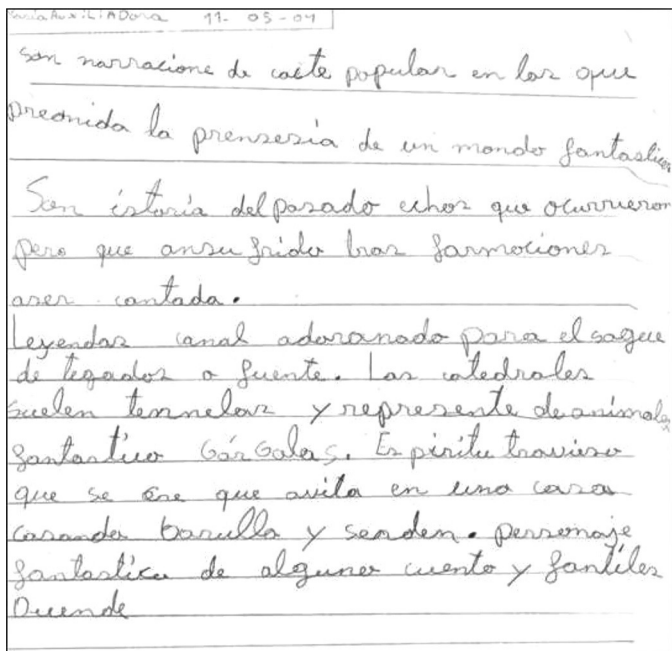 María AuxiLiADora 11-05-04
son narracione de caste popular en las que
preonida la prensesia de un mondo fantastico
Son istoria del pasado echos que ocurrieron
pero que ansu frido tras farmociones
aser contada.
Leyendas canal adoranado para el sague
de tegados o fuente. Las catedrales
suelen tennelas y represente de animales
fantastico GárGolas. Espiritu travieso
que se cre que avita en una casa
casando barulla y sesden. personaje
fantastico de alguno cuento y fantiles
Duende